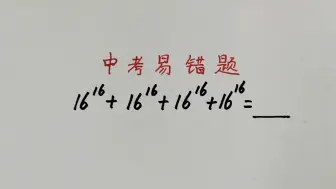 中考易错题
16¹⁶ + 16¹⁶ + 16¹⁶ + 16¹⁶ = ____